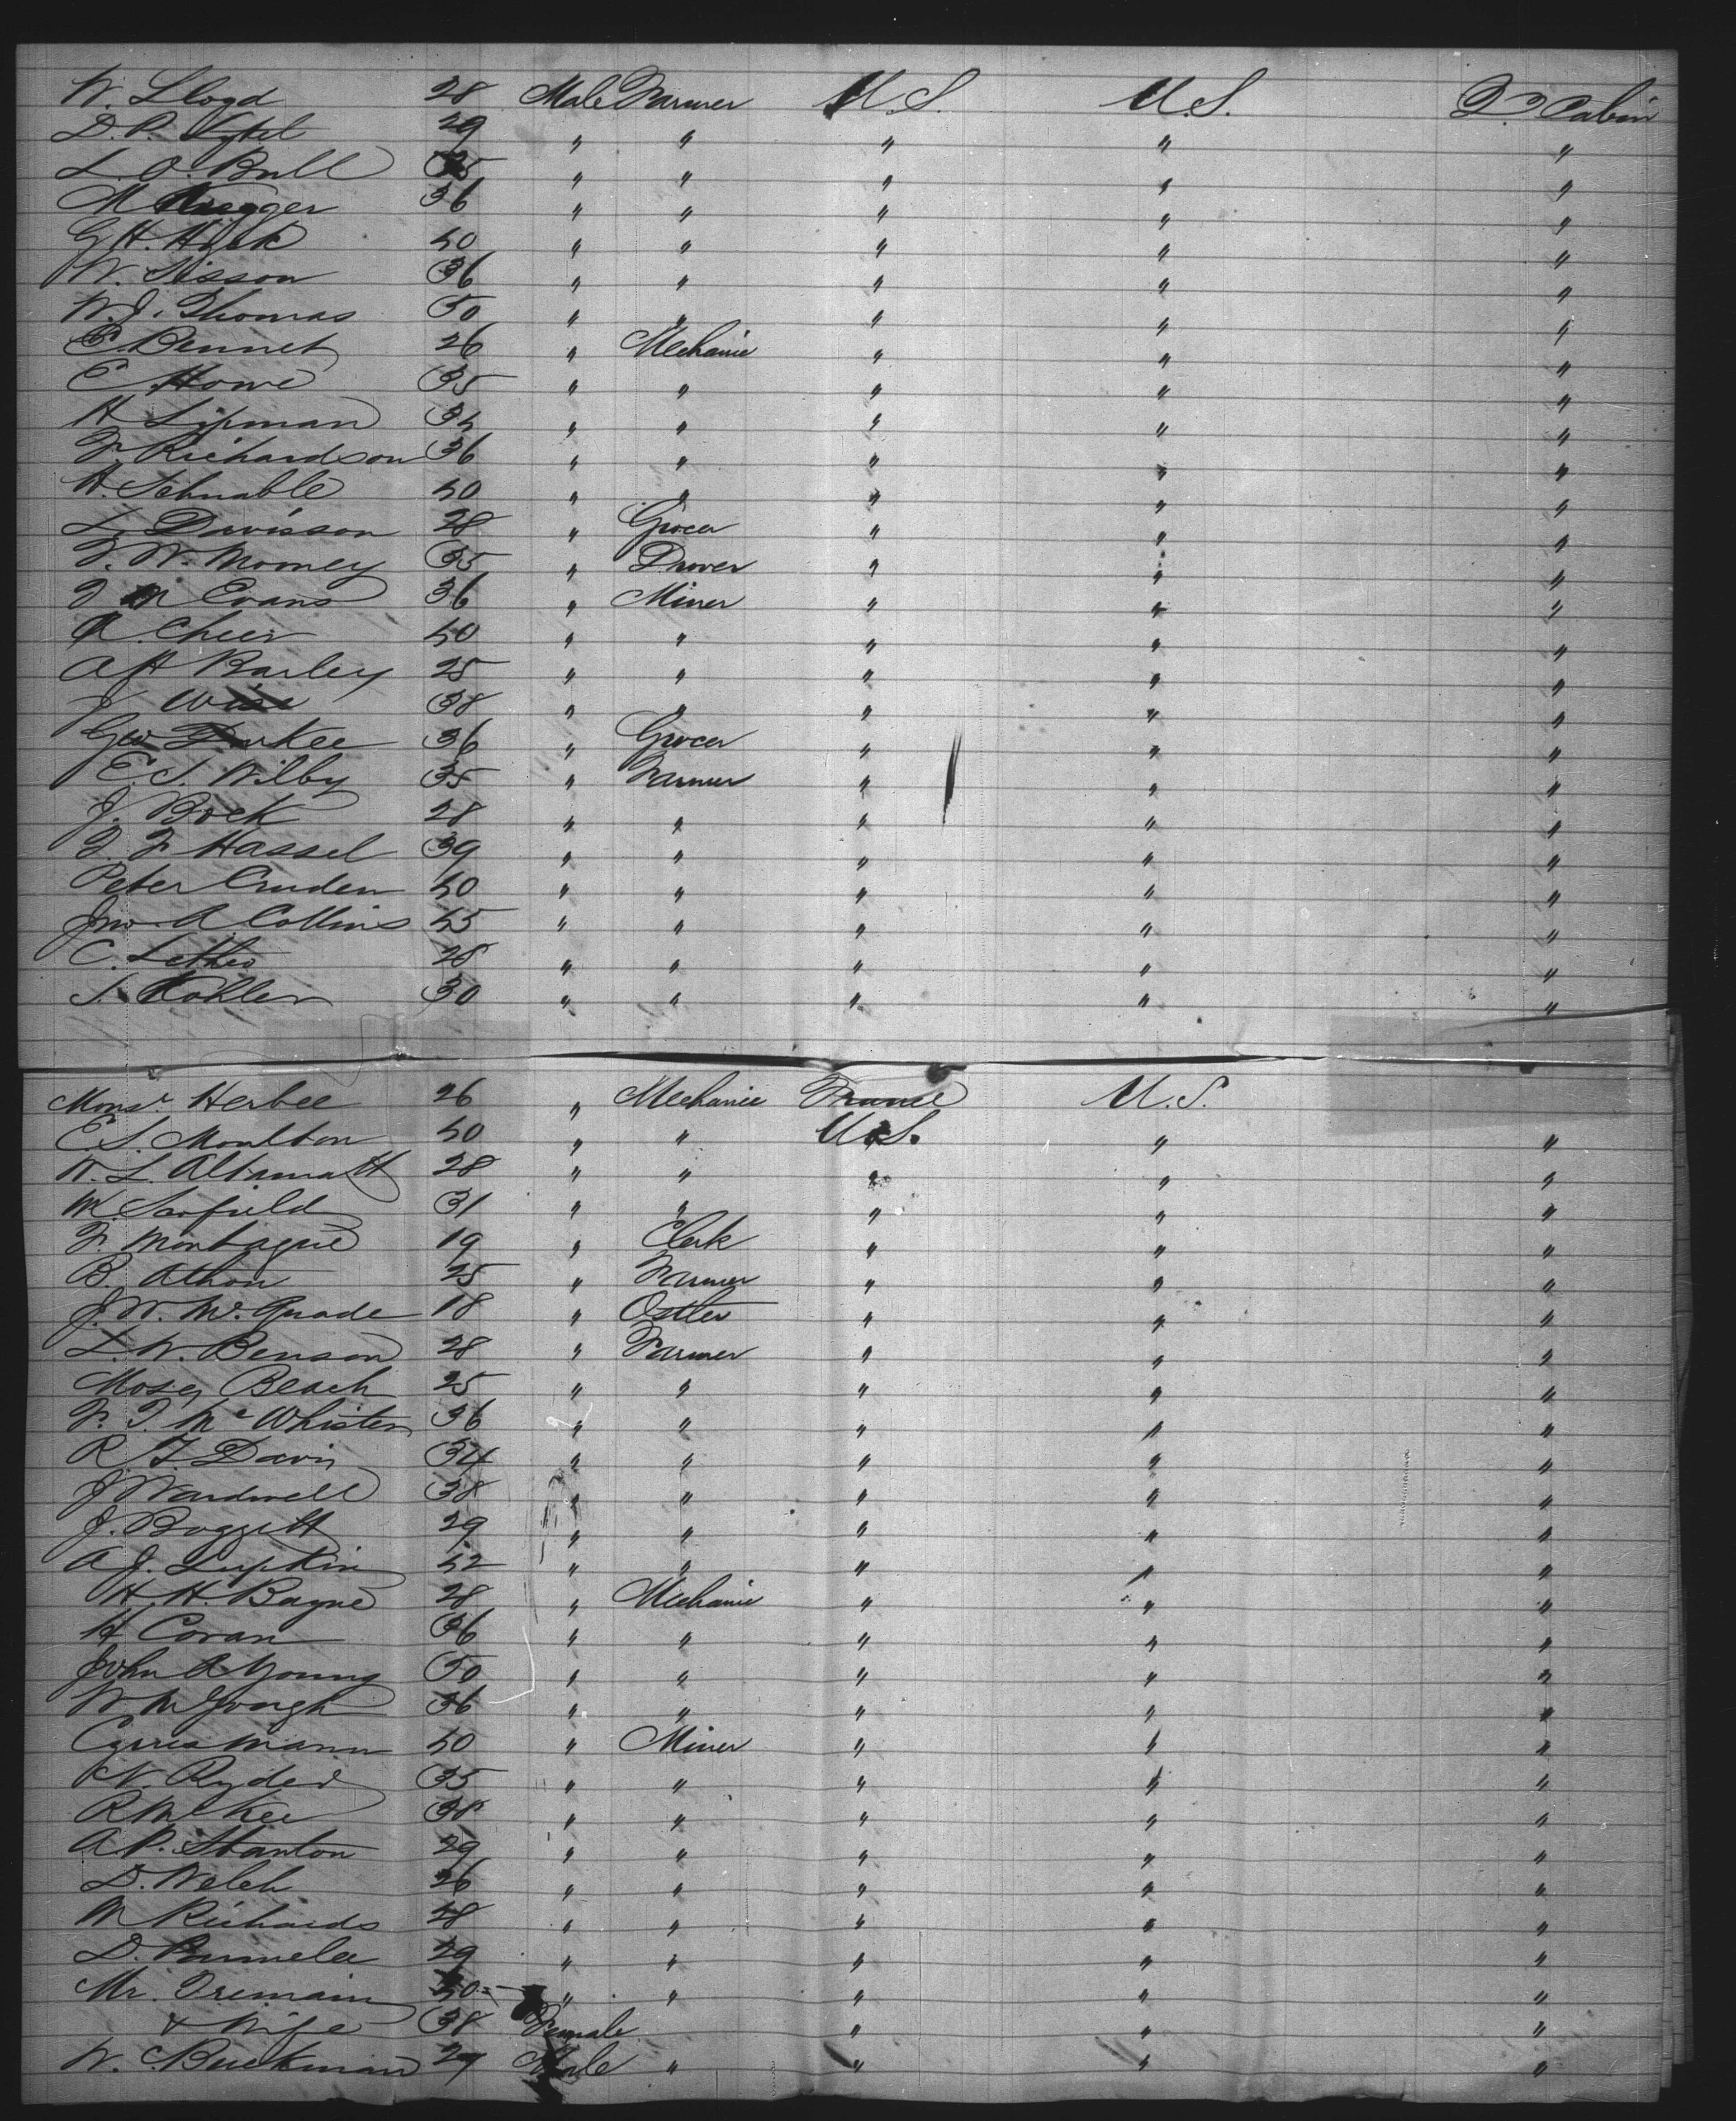 W. Lloyd 28 Male Farmer U.S. U.S. 2d Cabin
D. P. 29 " " " " "
L. O. Bull 35 " " " " "
M 36 " " " " "
G H. 40 " " " " "
W. Sisson 36 " " " " "
W. J. Thomas 50 " " " " "
E. Bennet 26 " Mechanic " " "
E Howe 35 " " " " "
H Lipman 34 " " " " "
F. Richardson 36 " " " " "
H. Schnable 40 " " " " "
L. Davisson 28 " Grocer " " "
T. W. Mooney 35 " Drover " " "
T M Evans 36 " Miner " " "
A. Cheer 40 " " " " "
A H Barley 25 " " " " "
J Wise 38 " " " " "
Geo Durkee 36 " Grocer " " "
E. S. Wilby 35 " Farmer " " "
J. Bock 28 " " " " "
T. F Hassel 39 " " " " "
Peter Cruden 40 " " " " "
Jno. A Collins 45 " " " " "
C. 28 " " " " "
S. Kohler 30 " " " " "
Monsr. Herbee 26 " Mechanic France U.S.
E S. Moulton 40 " " U.S. " "
W. L. Altamatt 28 " " " " "
W. Scofield 31 " " " " "
F. Montague 19 " Clerk " " "
B. Athon 25 " Farmer " " "
J. W. Mc. Quade 18 " Ostler " " "
L. W. Benson 28 " Farmer " " "
Moses Beach 25 " " " " "
F. T. Mc Whister 36 " " " " "
R. T. Davis 34 " " " " "
J Wardwell 38 " " " " "
J. Boggett 29 " " " " "
A J. Lupkin 42 " " " " "
H. H. Bayne 28 " Mechanic " " "
H Covan 36 " " " " "
John A Young 50 " " " " "
W. M Gough 36 " " " " "
Cyrus Mann 40 " Miner " " "
N. Ryder 35 " " " " "
R McKee 38 " " " " "
A. P. Stanton 29 " " " " "
D. Welch 26 " " " " "
M Richards 28 " " " " "
D. Parmelee 29 " " " " "
Mr. Tremain 40 " " " " "
& Wife 38 Female " " "
W. Buckman 27 Male " " " "